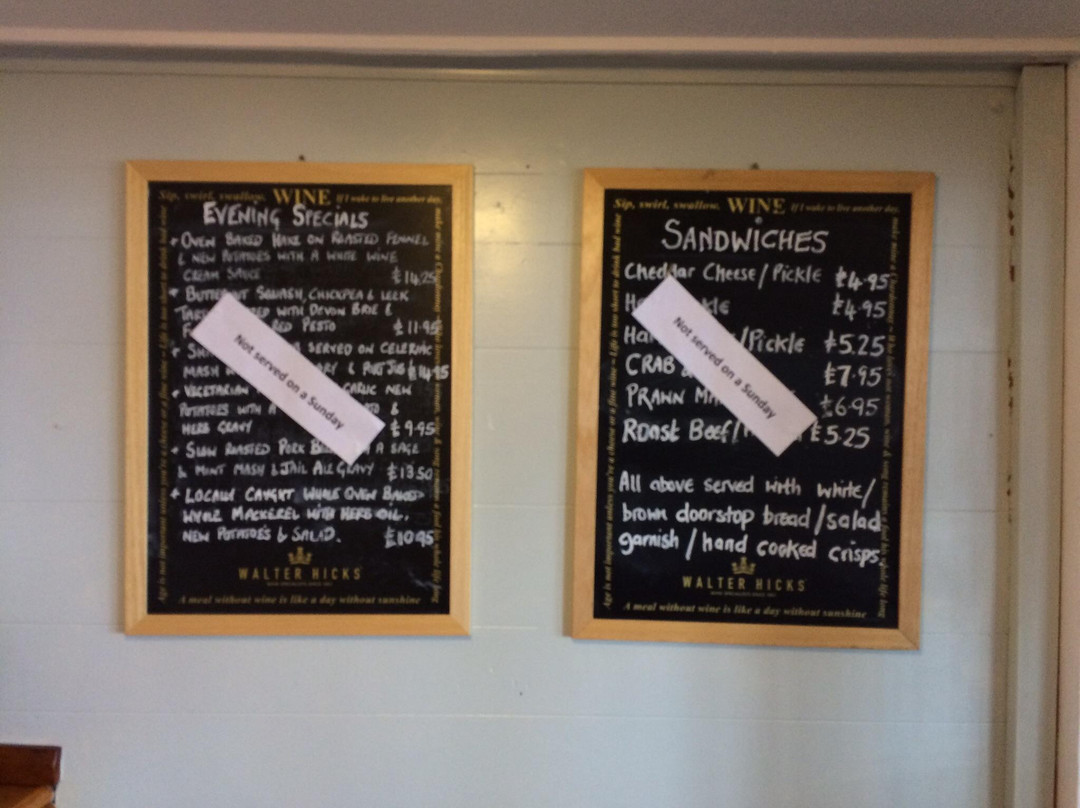 Sip, swirl, swallow. WINE If I wake to live another day,
EVENING SPECIALS
OVEN BAKED HAKE ON ROASTED FENNEL
& NEW POTATOES WITH A WHITE WINE
CREAM SAUCE £14.25
BUTTERNUT SQUASH, CHICKPEA & LEEK
WITH DEVON BRIE &
RED PESTO £11.95
SERVED ON CELERIAC
MASH & PORT JUS £14.95
VEGETARIAN GARLIC NEW
POTATOES WITH A &
HERB GRAVY £9.95
SLOW ROASTED PORK A SAGE
& MINT MASH & JAIL ALE GRAVY £13.50
LOCALLY CAUGHT WHOLE OVEN BAKED
WHOLE MACKEREL WITH HERB OIL,
NEW POTATOES & SALAD. £10.95
WALTER HICKS
A meal without wine is like a day without sunshine
Age is not important unless you're a cheese or a fine wine ~ Life is too short to drink bad wine
Not served on a Sunday
Sip, swirl, swallow. WINE If I wake to live another day,
SANDWICHES
Cheddar Cheese/Pickle £4.95
£4.95
/Pickle £5.25
CRAB £7.95
PRAWN £6.95
Roast Beef/ £5.25
All above served with white/
brown doorstop bread/salad
garnish/hand cooked crisps.
WALTER HICKS
A meal without wine is like a day without sunshine
Age is not important unless you're a cheese or a fine wine ~ Life is too short to drink bad wine
Not served on a Sunday